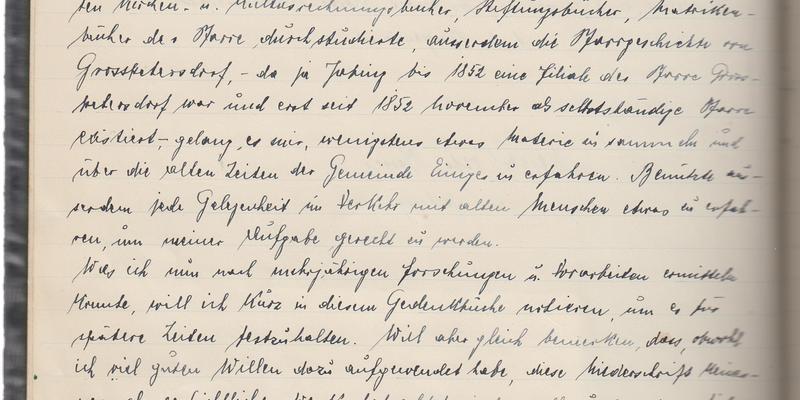 ten Kirchen- u. Kultusrechnungsbücher, Stiftungsbücher, Matriken-
bücher der Pfarre durchstudierte, ausserdem die Pfarrgeschichte von
Grosspetersdorf, - da ja Jabing bis 1852 eine Filiale der Pfarre Gross-
petersdorf war und erst seit 1852 November als selbstständige Pfarre
existiert -, gelang es mir, wenigstens etwas Materie zu sammeln und
über die alten Zeiten der Gemeinde Einiges zu erfahren. Benützte aus-
serdem jede Gelegenheit im Verkehr mit alten Menschen etwas zu erfah-
ren, um meiner Aufgabe gerecht zu werden.
Was ich nun nach mehrjährigen Forschungen u. Vorarbeiten ermitteln
konnte, will ich kurz in diesem Gedenkbuche notieren, um es für
spätere Zeiten festzuhalten. Will aber gleich bemerken, dass, obwohl
ich viel guten Willen dazu aufgewendet habe, diese Niederschrift